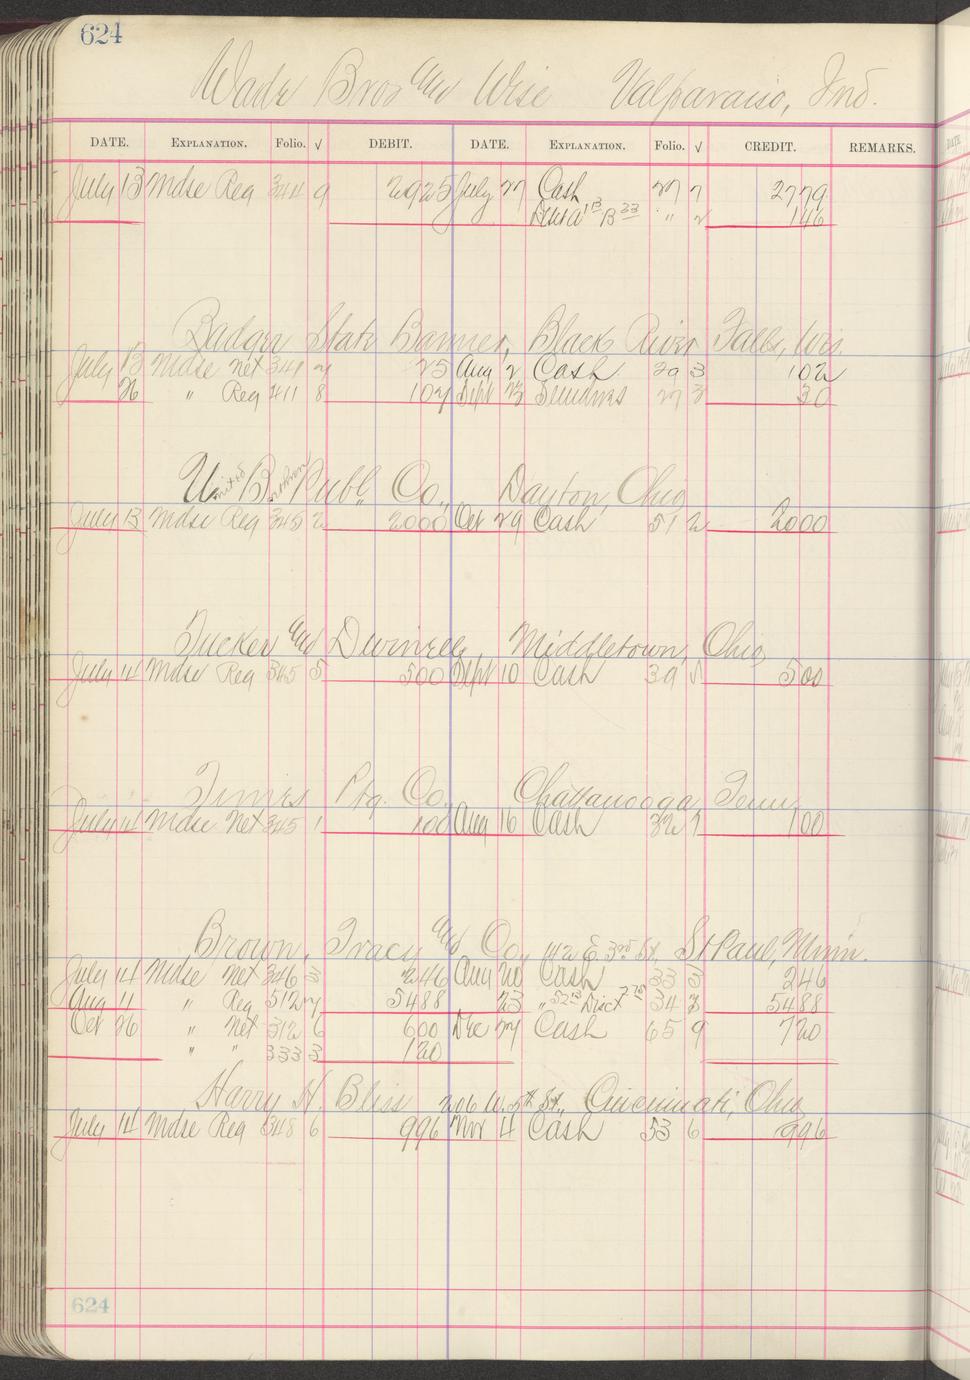 624
Wade Bros and Wise Valparaiso, Ind.
DATE. EXPLANATION. Folio. √ DEBIT. DATE. EXPLANATION. Folio. √ CREDIT. REMARKS.
July 13 Mdse Reg 344 9 2925 July 27 Cash 27 7 2779
" 2 146
Badger State Banner, Black River Falls, Wis.
July 13 Mdse Net 341 25 Aug 2 Cash 29 3 102
26 " Reg 411 8 107 Sept 23 Sundries 27 3 30
United Brethren Publ. Co., Dayton, Ohio
July 13 Mdse Reg 345 2 2000 Oct 29 Cash 51 2 2000
Tucker and Dwinell, Middletown, Ohio
July 14 Mdse Reg 345 5 500 Sept 10 Cash 39 5 500
Times Ptg. Co., Chattanooga, Tenn.
July 14 Mdse Net 345 1 100 Aug 16 Cash 32 7 100
Brown, Tracy and Co., 112 E. 3rd St., St Paul, Minn.
July 14 Mdse Net 346 3 246 Aug 20 Cash 33 3 246
Aug 11 " Reg 512 7 5488 23 " Disct 34 8 5488
Oct 26 " Net 312 6 600 Dec 27 Cash 65 9 720
" " 333 3 120
Harry H. Bliss 206 W. 5th St., Cincinnati, Ohio
July 14 Mdse Reg 348 6 996 Nov 4 Cash 53 6 996
624